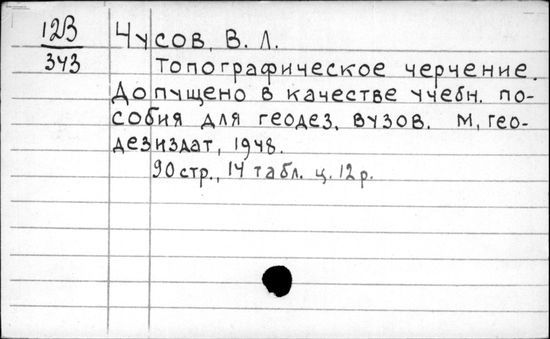 123
343
Чусов, В. Л.
Топографическое черчение.
Допущено в качестве учебн. по-
собия для геодез. вузов. М, гео-
дезиздат, 1948.
90 стр., 14 табл. ц. 12 р.